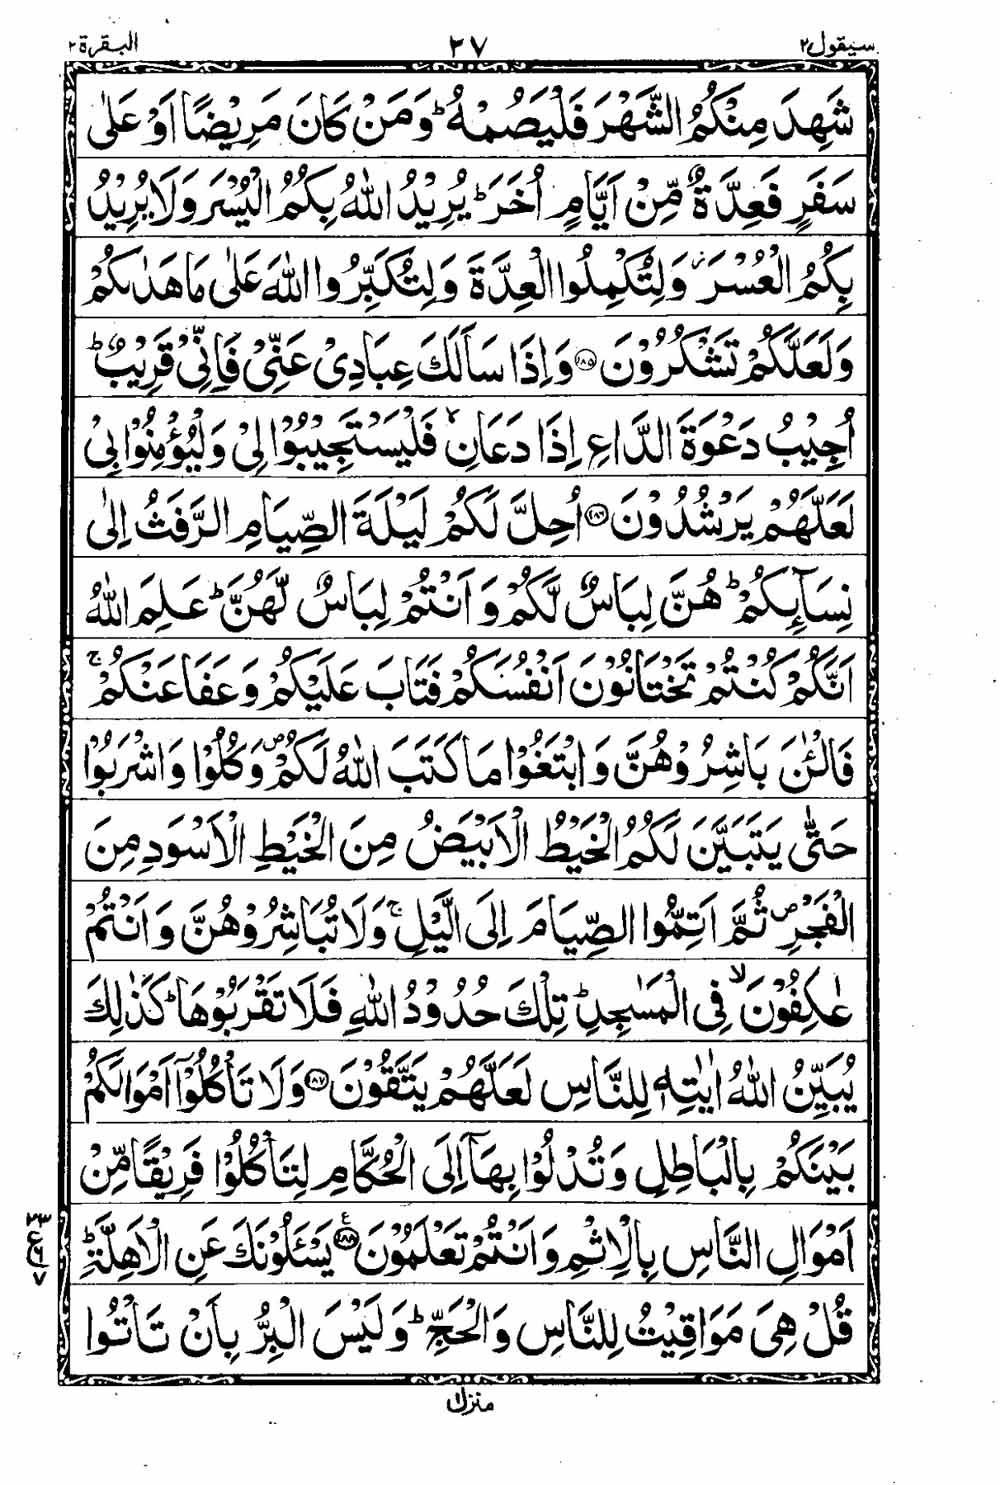 سيقول ٢ ٢٧ البقرة ٢
شَهِدَ مِنْكُمُ الشَّهْرَ فَلْيَصُمْهُ ؕ وَمَنْ كَانَ مَرِيْضًا اَوْ عَلٰى
سَفَرٍ فَعِدَّةٌ مِّنْ اَيَّامٍ اُخَرَ ؕ يُرِيْدُ اللّٰهُ بِكُمُ الْيُسْرَ وَلَا يُرِيْدُ
بِكُمُ الْعُسْرَ ؗ وَلِتُكْمِلُوا الْعِدَّةَ وَلِتُكَبِّرُوا اللّٰهَ عَلٰى مَا هَدٰىكُمْ
وَلَعَلَّكُمْ تَشْكُرُوْنَ ﴿١٨٥﴾ وَاِذَا سَاَلَكَ عِبَادِىْ عَنِّىْ فَاِنِّىْ قَرِيْبٌ ؕ
اُجِيْبُ دَعْوَةَ الدَّاعِ اِذَا دَعَانِ ۙ فَلْيَسْتَجِيْبُوْا لِىْ وَلْيُؤْمِنُوْا بِىْ
لَعَلَّهُمْ يَرْشُدُوْنَ ﴿١٨٦﴾ اُحِلَّ لَكُمْ لَيْلَةَ الصِّيَامِ الرَّفَثُ اِلٰى
نِسَآئِكُمْ ؕ هُنَّ لِبَاسٌ لَّكُمْ وَاَنْتُمْ لِبَاسٌ لَّهُنَّ ؕ عَلِمَ اللّٰهُ
اَنَّكُمْ كُنْتُمْ تَخْتَانُوْنَ اَنْفُسَكُمْ فَتَابَ عَلَيْكُمْ وَعَفَا عَنْكُمْ ۚ
فَالْـٰٔنَ بَاشِرُوْهُنَّ وَابْتَغُوْا مَا كَتَبَ اللّٰهُ لَكُمْ ۪ وَكُلُوْا وَاشْرَبُوْا
حَتّٰى يَتَبَيَّنَ لَكُمُ الْخَيْطُ الْاَبْيَضُ مِنَ الْخَيْطِ الْاَسْوَدِ مِنَ
الْفَجْرِ ۪ ثُمَّ اَتِمُّوا الصِّيَامَ اِلَى الَّيْلِ ۚ وَلَا تُبَاشِرُوْهُنَّ وَاَنْتُمْ
عٰكِفُوْنَ ۙ فِى الْمَسٰجِدِ ؕ تِلْكَ حُدُوْدُ اللّٰهِ فَلَا تَقْرَبُوْهَا ؕ كَذٰلِكَ
يُبَيِّنُ اللّٰهُ اٰيٰتِهٖ لِلنَّاسِ لَعَلَّهُمْ يَتَّقُوْنَ ﴿١٨٧﴾ وَلَا تَاْكُلُوْٓا اَمْوَالَكُمْ
بَيْنَكُمْ بِالْبَاطِلِ وَتُدْلُوْا بِهَآ اِلَى الْحُكَّامِ لِتَاْكُلُوْا فَرِيْقًا مِّنْ
اَمْوَالِ النَّاسِ بِالْاِثْمِ وَاَنْتُمْ تَعْلَمُوْنَ ﴿١٨٨﴾ يَسْـَٔلُوْنَكَ عَنِ الْاَهِلَّةِ ؕ
قُلْ هِىَ مَوَاقِيْتُ لِلنَّاسِ وَالْحَجِّ ؕ وَلَيْسَ الْبِرُّ بِاَنْ تَاْتُوا
منزل ١